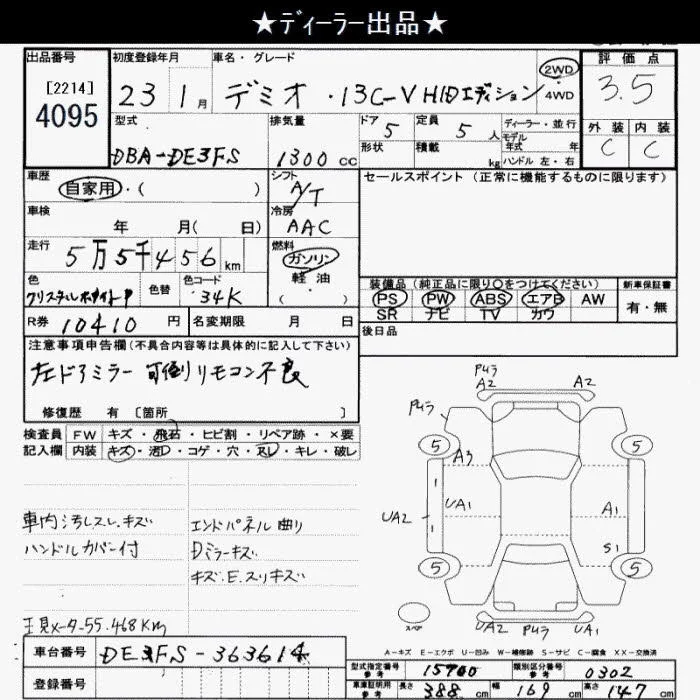 ★ディーラー出品★
出品番号 初度登録年月 車名・グレード 評価点
[2214]
4095
23 1月 デミオ・13C-V HIDエディション 2WD・4WD 3.5
型式 排気量 ドア 5 定員 5人 ディーラー・並行 外装 内装
DBA-DE3FS 1300cc 形状 積載 kg モデル年式 年 C C
ハンドル 左・右
車歴 シフト セールスポイント (正常に機能するものに限ります)
自家用・( ) A/T
車検 冷房
年 月( 日) AAC
走行 燃料
5万5千456km ガソリン
軽油
( )
色 色替 色コード 装備品 (純正品に限り○をつけてください) 新車保証書
クリスタルホワイトP 34K PS PW ABS エアB AW 有・無
SR ナビ TV カワ
R券 10410円 名変期限 月 日 後日品
注意事項申告欄(不具合内容等は具体的に記入して下さい)
左ドアミラー 可倒リモコン不良
修復歴 有 [箇所 ]
検査員 FW キズ・飛石・ヒビ割・リペア跡・×要
記入欄 内装 キズ・汚レ・コゲ・穴・スレ・キレ・破レ
車内汚レスレ、キズ エンドパネル曲り
ハンドルカバー付 Dミラーキズ
キズ.E.スリキズ
現メーター55.468Km
車台番号 DE3FS-363614
登録番号
A2 A2
5 5
A3
UA2 UA1 A1
S1
5 5
スペア
UA2 UA1
A-キズ E-エクボ U-凹み W-補修跡 S-サビ C-腐食 XX-交換済
型式指定番号 参考 15900 類別区分番号 参考 0302
車庫証明用 参考 長さ 388cm 幅 169cm 高さ 147cm